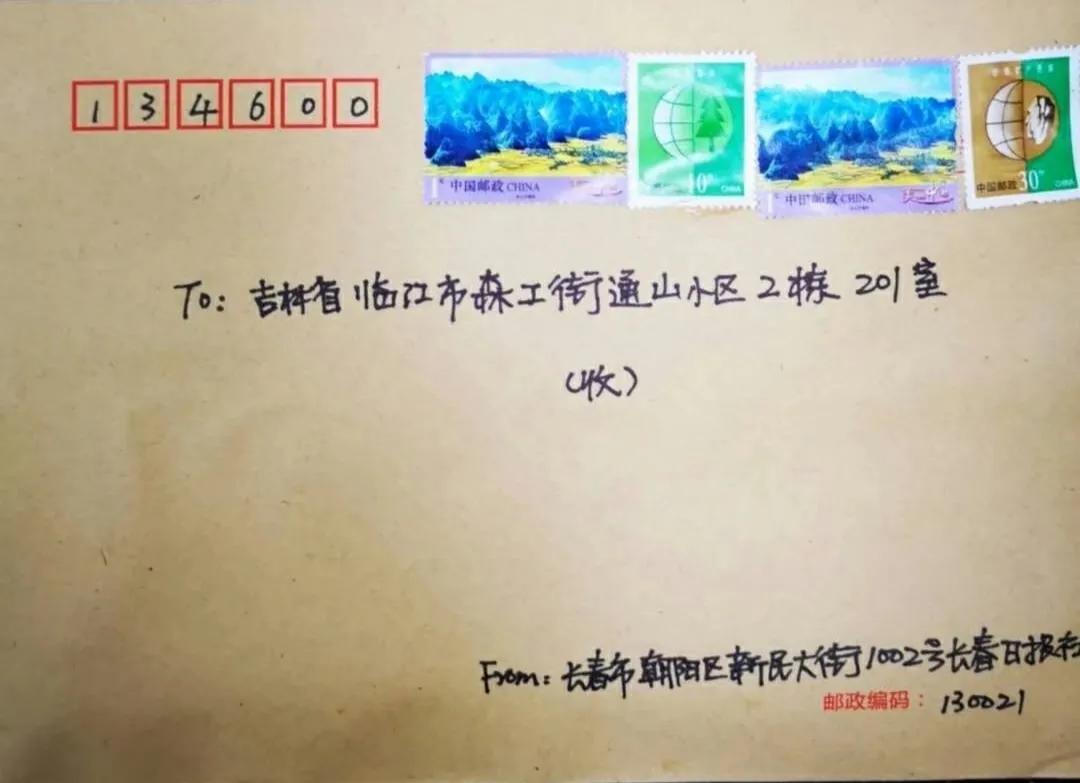 134600
中国邮政 CHINA
10分 CHINA
中国邮政 CHINA
中国邮政 30分 CHINA
To: 吉林省临江市森工街通山小区2栋 201室
(收)
From: 长春市朝阳区新民大街1002号长春日报社
邮政编码: 130021